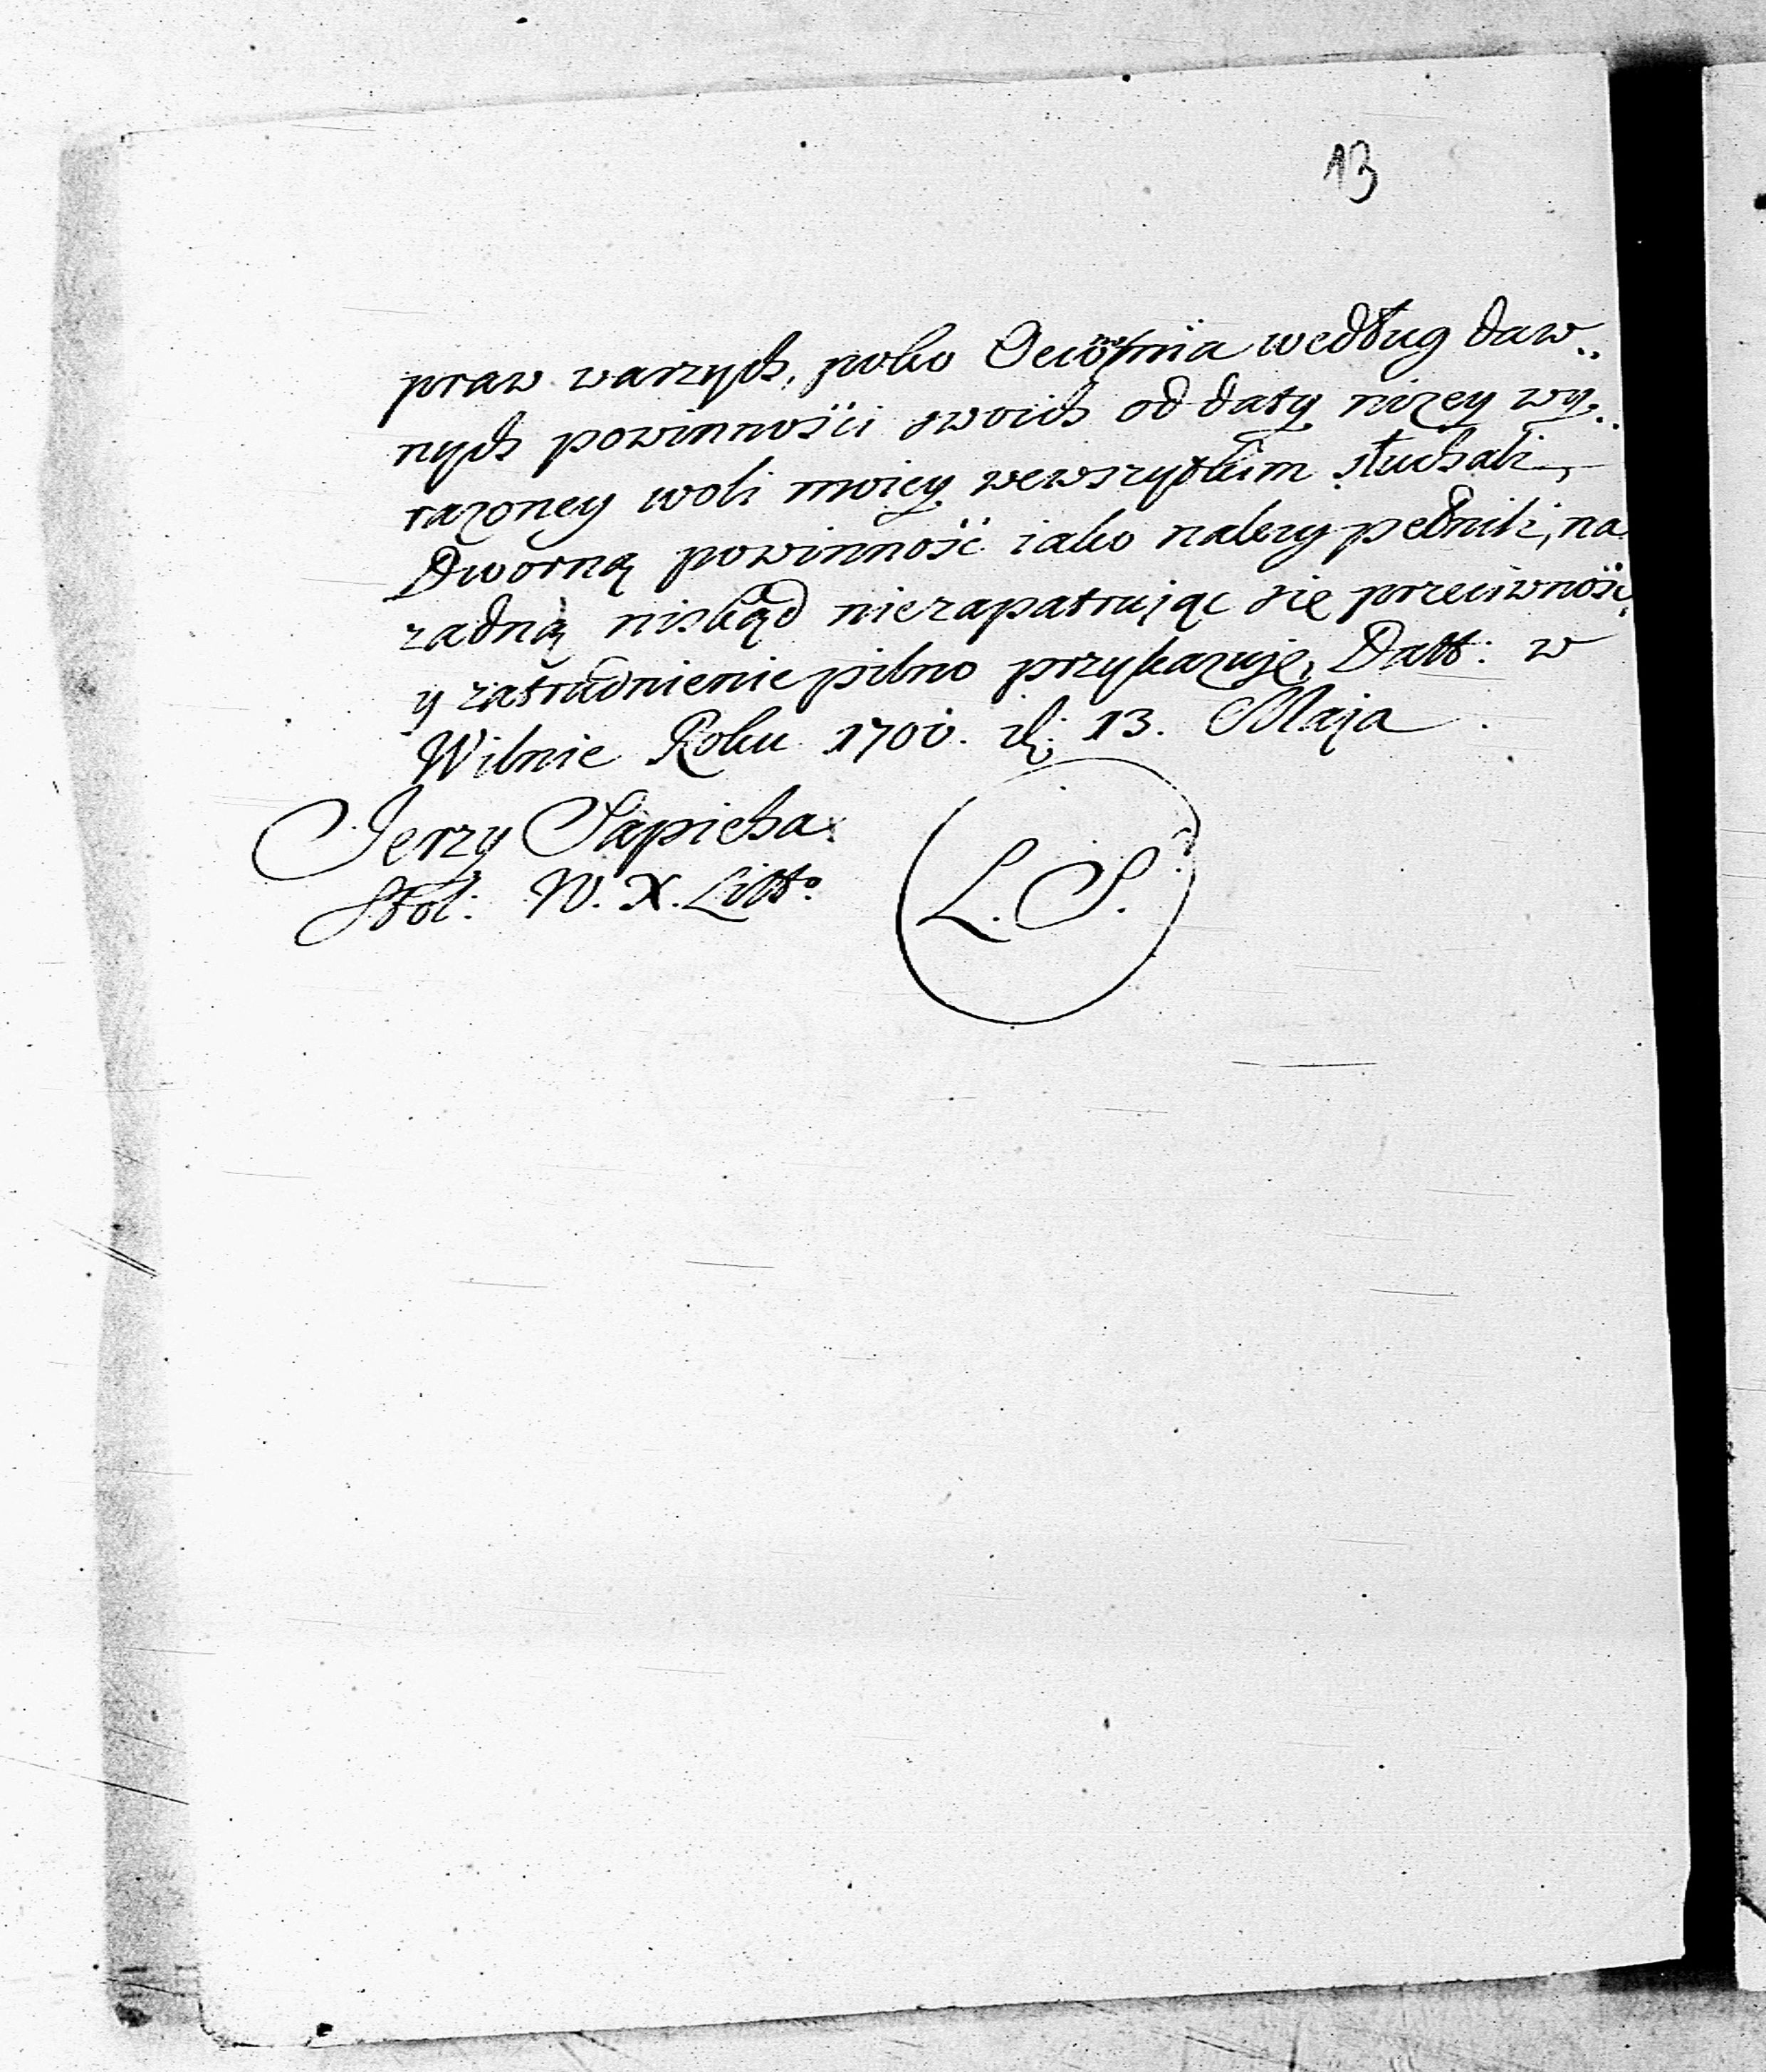 13
praw warzych, jako Oecönomia według daw..
nych powinnośći swoich od daty niżey wy..
razoney woli moiey wewszytkim słuchali,
Dworną powinność iako nalezy pełnili, na
zadną niskąd niezapatrując się przeciwność,
y zatrudnienie pilno przykazuję. Datt: w
Wilnie Roku 1700. d: 13. Maja.
Jerzy Sapieha
Stol: W. X. Litt°
L. S.